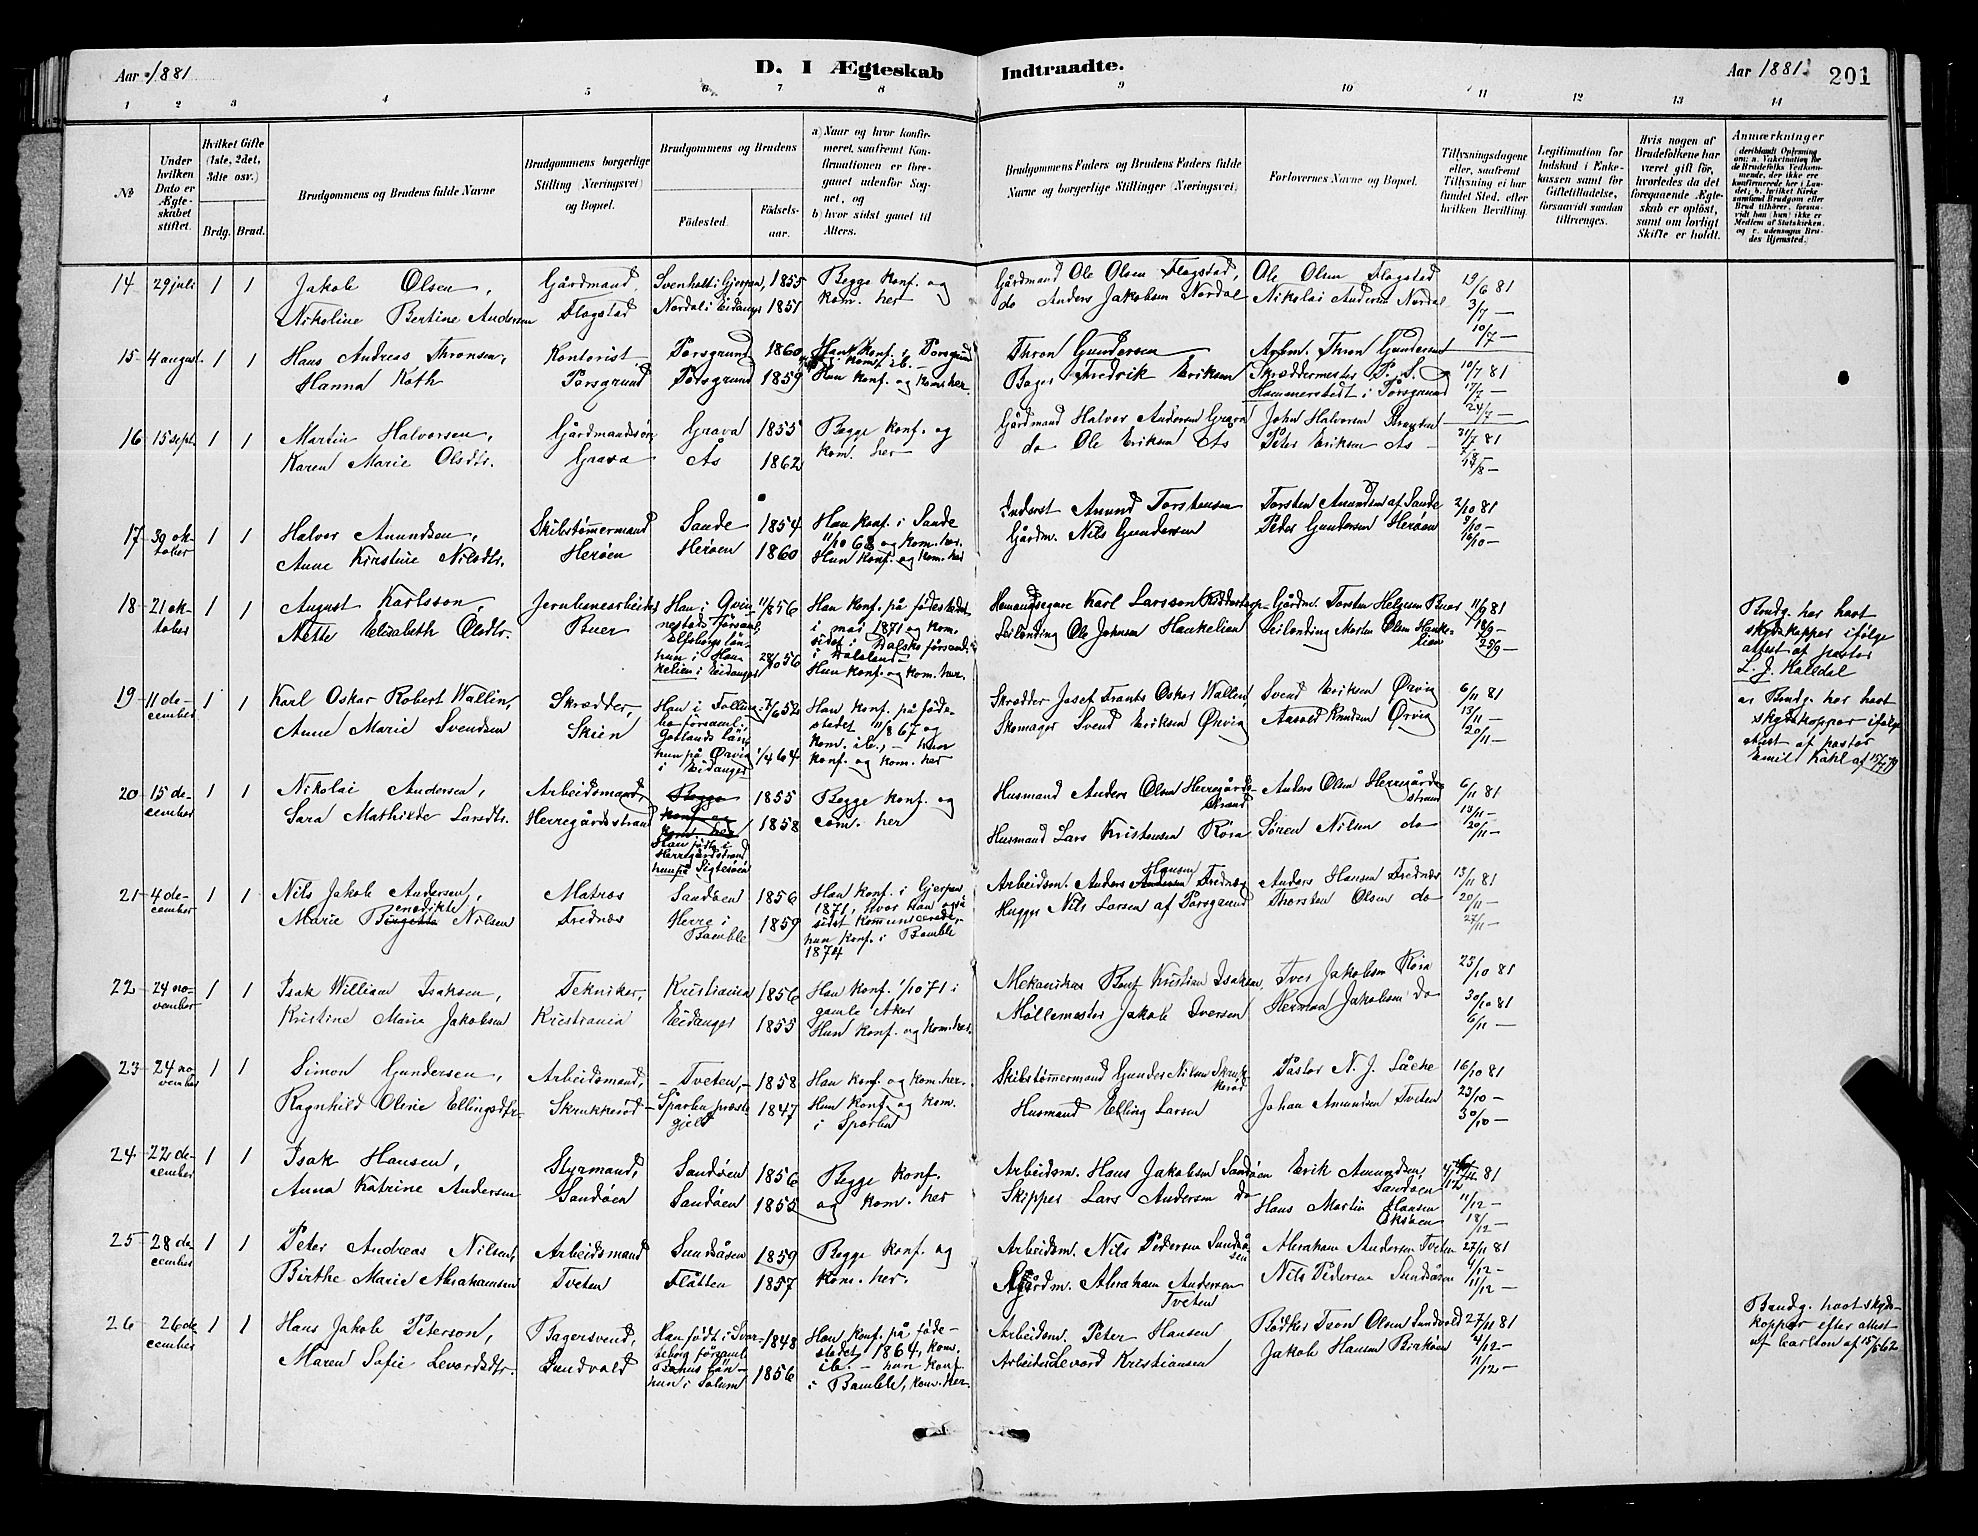 Aar 1881
D. I Ægteskab Indtraadte.
Aar 1881.
201
1 2 3 4 5 6 7 8 9 10 11 12 13 14
No
Under hvilken Dato er Ægteskabet stiftet.
Hvilket Gifte (1ste, 2det, 3dte osv.)
Brdg. Brud.
Brudgommens og Brudens fulde Navne
Brudgommens borgerlige Stilling (Næringsvei) og Bopæl.
Brudgommens og Brudens
Fødested.
Fødselsaar.
a) Naar og hvor konfirmeret, saafremt Konfirmationen er foregaaet udenfor Sognet, og
b) hvor sidst gaaet til Alters.
Brudgommens Faders og Brudens Faders fulde Navne og borgerlige Stillinger (Næringsvei)
Forlovernes Navne og Bopæl.
Tillysningsdagene eller, saafremt Tillysning ei har fundet Sted, efter hvilken Bevilling.
Legitimation for Indskud i Enkekassen samt for Giftetilladelse, forsaavidt saadan tiltrænges.
Hvis nogen af Brudefolkene har været gift før, hvorledes da det foregaaende Ægteskab er opløst, samt om lovligt Skifte er holdt.
Anmærkninger
(deriblandt Oplysning om: a. Vakcination for de Brudefolks Vedkommende, der ikke ere konfirmerede her i Landet; b. hvilket Kirkesamfund Brudgom eller Brud tilhører, forsaavidt han (hun) ikke er Medlem af Statskirken, og c. udensogns Brudes Hjemsted.)
14 29 juli 1 1 Jakob Olsen, Gårdmand, Svenholt i Gjerpen, 1855 Begge konf. og Gårdmand Ole Olsen Flogstad, Ole Olsen Flogstad 19/6 81
Nikoline Bertine Andersen Flogstad Nordal i Eidanger 1851 kom. her do Anders Jakobsen Nordal Nikolai Andersen Nordal 3/7 —
10/7 —
15 4 august 1 1 Hans Andreas Thronsen, Kontorist Porsgrund 1860 Han konf. i Porsgrund kom. ib. — Thron Gundersen Arbm. Thron Gundersen
Hanna Koth Porsgrund Porsgrund 1859 Hun konf. og kom. her Bager Fredrik Eriksen Skræddermester P. S. 10/7 81
Hammerstedt i Porsgrund 17/7 —
24/7 —
16 15 sept. 1 1 Martin Halvorsen, Gårdmandsøn Grava 1855 Begge konf. og Gårdmand Halvor Andersen Grava John Halvorsen
Karen Marie Olsdtr. Grava Ås 1862 kom. her do Ole Eriksen Ås Peter Eriksen Ås 31/7 81
17 39 oktober 1 1 Halvor Amundsen, Skibstømmermand Sande 1854 Han konf. i Sande Inderst Amund Torstensen Torsten Amundsen af Sande 2/10 81
11/10 68 og kom. her. 9/10 —
Anne Kirstine Nilsdtr. Herøen Herøen 1860 Hun konf. og kom. her Gårdm. Nils Gundersen Peder Gundersen Herøen 16/10 —
18 21 oktober 1 1 August Karlsson, Jernbanearbeider Han i Qvinnestads församl. Elfsborgs län 11/8 56 Han konf. på fødestedet i mai 1871 og kom. sidst i Dalskog församl. i Dalsland — Hemmansegare Karl Larsson Gårdm. Torsten Helgesen Buer 11/9 81
Nette Elisabeth Olsdtr. Buer hun i Haukelien i Eidanger 28/10 56 Hun konf. og kom. her. Leilending Ole Johnsen Haukelien Leilending Morten Olsen Haukelien 18/9 —
25/9 —
Brudg. har havt skydskopper ifølge attest af pastor L. J. Halldal
19 11 december 1 1 Karl Oskar Robert Wallin, Skrædder, Han i Follingbo församl. Gotlands län 7/6 52 Han konf. på fødestedet 11/8 67 og kom. ib., — Skrædder Josef Frants Oskar Wallin, Svend Eriksen Ørvig 6/11 81
Anne Marie Svendsen Skien hun på Ørvig i Eidanger 1/4 64 hun konf. og kom. her Skomager Svend Eriksen Ørvig Aasold Knudsen Ørvig 13/11 —
20/11 —
a) Brudg. har havt skydskopper ifølge attest af pastor Emil Kahl af
20 15 december 1 1 Nikolai Andersen, Arbeidsmand, Begge konf. og kom. her 1855 Begge konf. og Husmand Anders Olsen Herregårdsstrand Anders Olsen Herregårdsstrand 6/11 81
Sara Mathilde Larsdtr. Herregårdsstrand Han født i Herregårdsstrand hun på Sigtesøen 1858 com. her Husmand Lars Kristensen Røra Søren Nilsen do 13/11 —
20/11 —
21 4 december 1 1 Nils Jakob Andersen, Matros Sandøen 1856 Han konf. i Gjerpen 1871, hvor han også sidst kommunicerede, Arbeidsm. Anders Andersen Hansen Frednæs Anders Hansen Frednæs 13/11 81
Marie Birgitte Benedikte Nilsen Frednæs Herre i Bamble 1859 hun konf. i Bamble 1874 Hugger Nils Larsen af Porsgrund Thorsten Olsen do 20/11 —
27/11 —
22 24 november 1 1 Isak William Isaksen, Tekniker, Kristiania 1856 Han konf. 1/10 71 i gamle Aker Mekanikus Bent Kristian Isaksen, Iver Jakobsen Røra 23/10 81
Kristine Marie Jakobsen Kristiania Eidanger 1855 Hun konf. og kom. her. Møllemester Jakob Iversen Herman Jakobsen do 30/10 81
6/11 —
23 24 november 1 1 Simon Gundersen, Arbeidsmand, — Tveten, — 1858 Han konf. og kom. her. Skibstømmermand Gunder Nilsen Skrukkerød Pastor N. J. Låche 16/10 81
Ragnhild Oline Ellingsdtr. Skrukkerød — Sparbu præstegjeld 1847 Hun konf. og kom. i Sparbu Husmand Elling Larsen Johan Amundsen Tveten 23/10 —
30/10 —
24 22 december 1 1 Isak Hansen, Styrmand, Sandøen 1856 Begge konf. Arbeidsm. Hans Jakobsen Sandøen Erik Amundsen, Sandøen 4/12 81
Anna Katrine Andersen Sandøen Sandøen 1855 og kom. her Skipper Lars Andersen do Hans Martin Hansen Øksøen 11/12 —
18/12 —
25 28 december 1 1 Peter Andreas Nilsen, Arbeidsmand Sundåsen 1859 Begge konf. og Arbeidsm. Nils Pedersen Sundåsen Abraham Andersen Tveten 27/11 81
Birthe Marie Abrahamsen Tveten Flåtten 1857 kom. her. Gårdm. Abraham Andersen Tveten Nils Pedersen Sundåsen 4/12 —
11/12 —
26 26 december 1 1 Hans Jakob Peterson, Bagersvend, Han født i Svarteborg församl. Bahus län — 1848 Han konf. på fødestedet 1864, kom. ib. — Arbeidsm. Peter Hansen Bødker Teon Olsen Sundvold 27/11 81
Maren Sofie Levordsdtr. Sundvold hun i Solum 1856 hun konf. i Bamble, kom. her. Arbeider Levord Kristiansen Jakob Hansen Birkøen 4/12 —
11/12 —
Brudg. havt skydskopper efter attest af Carlson af 15/5 62